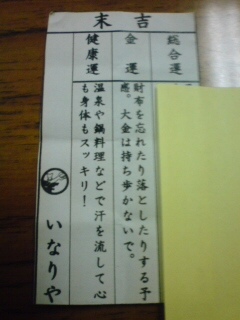 末吉
総合運
金運
財布を忘れたり落としたりする予
感。大金は持ち歩かないで。
健康運
温泉や鍋料理などで汗を流して心
も身体もスッキリ！
いなりや